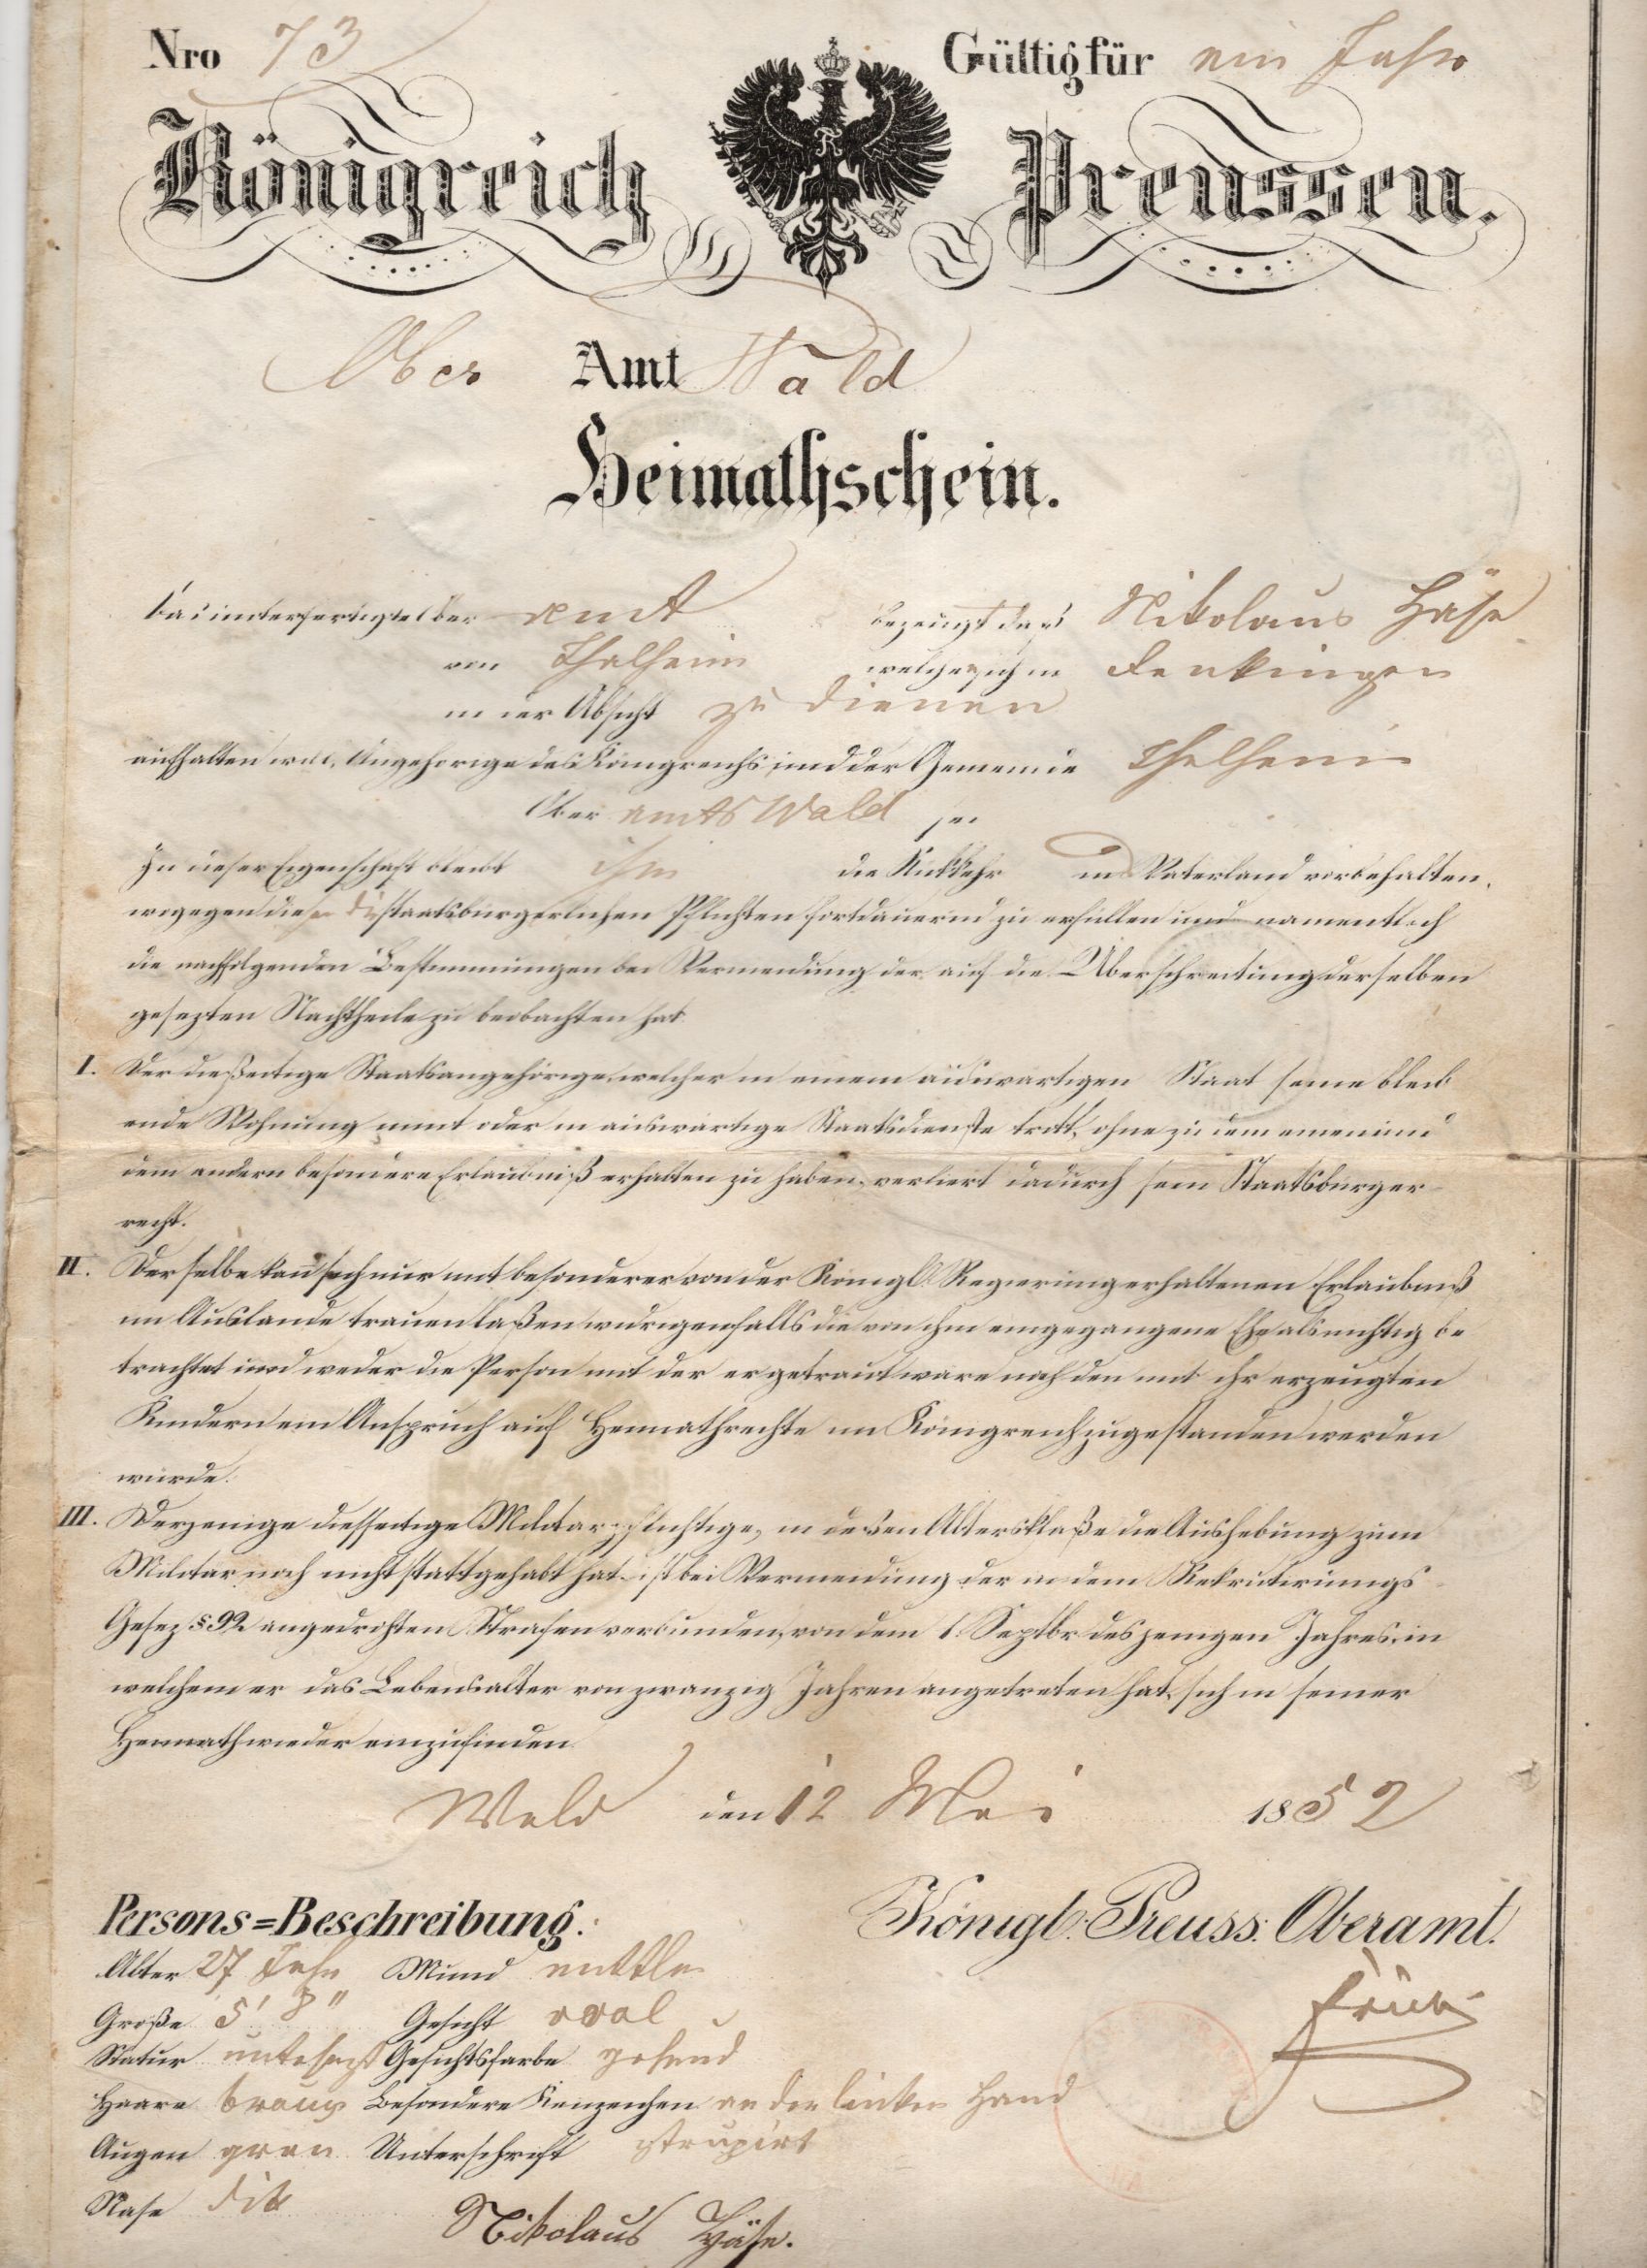 Nro 73
Gültig für ein Jahr
Königreich Preussen.
Ober Amt Wald
Heimathschein.
Das unterfertigte Ober amt bezeugt daß Nikolaus Häse
von Thalheim welcher sich in Denkingen
in der Absicht zu dienen
aufhalten will, Angehörige des Königreichs und der Gemeinde Thalheim
Ober amts Wald sei
In dieser Eigenschaft bleibt ihm die Rückkehr ins Vaterland vorbehalten,
wogegen dieser die staatsbürgerlichen Pflichten fortdauernd zu erfüllen und namentlich
die nachfolgenden Bestimmungen bei Vermeidung der auf die Überschreitung derselben
gesezten Nachtheile zu beobachten hat.
I. Der dießeitige Staatsangehörige, welcher in einem auswärtigen Staat seine bleib
ende Wohnung nimt oder in auswärtige Staatsdienste tritt, ohne zu dem einen und
dem andern besondere Erlaubniß erhalten zu haben, verliert dadurch sein Staatsbürger-
recht.
II. Derselbe kañ sich nur mit besonderer von der Königl. Regierung erhaltenen Erlaubniß
im Auslande trauen laßen widrigenfalls die von ihm eingegangene Ehe als nichtig be
trachtet und weder die Person mit der er getraut wäre noch den mit ihr erzeugten
Kindern ein Anspruch auf Heimathrechte im Königreich zugestanden werden
würde.
III. Derjenige diesseitige Militärpflichtige, in deßen Altersklaße die Aushebung zum
Militär noch nicht stattgehabt hat, ist bei Vermeidung der in dem Rekrutirungs-
Gesez § 92 angedrohten Strafen verbunden, von dem 1. Septbr desjenigen Jahres, in
welchem er das Lebensalter von zwanzig Jahren angetreten hat, sich in seiner
Heimath wieder einzufinden.
Wald den 12 Mai 1852
Persons=Beschreibung:
Königl: Preuss: Oberamt.
Alter 27 Jahr Mund mittler
Größe 5' 8" Gesicht oval
Statur untersezt Gesichtsfarbe gesund
Haare braun Besondere Kenzeichen an der linken Hand
Augen grau Unterschrift strupirt
Nase dik
Nikolaus Häse.